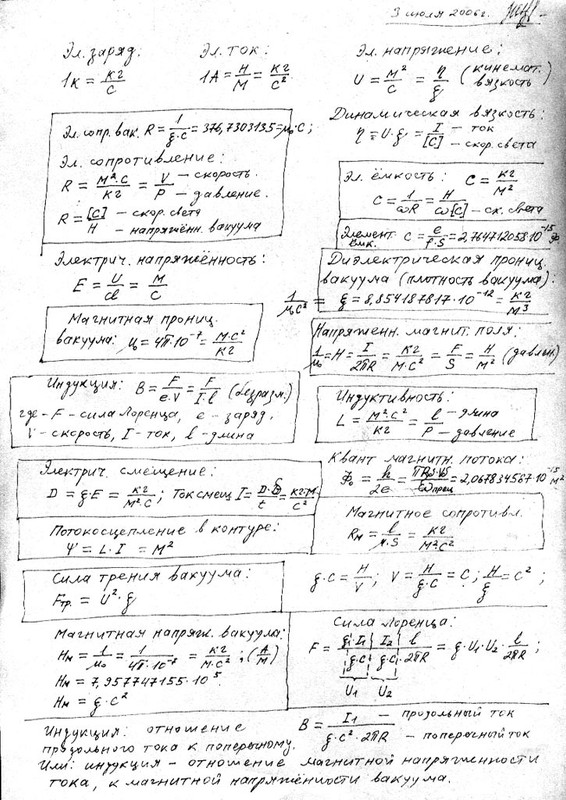 3 июля 2006г.
Эл. заряд:
1К = кг/с
Эл. ток:
1А = Н/м = кг/с²
Эл. напряжение:
U = м²/с = η/g (кинемат. вязкость)
Динамическая вязкость:
η = U·g = I/[c] — ток — скор. света
Эл. сопр. вак. R = 1/(g·c) = 376,7303135 = μ₀c;
Эл. сопротивление:
R = м²·с/кг = V/P — скорость. — давление.
R = [c]/H — скор. света — напряжённ. вакуума
Эл. ёмкость: C = кг/м²
C = 1/(ωR) = H/(ω[c]) — ск. света
Элемент. ёмк. C = = 2,764712058·10⁻¹⁵ Ф
Электрич. напряжённость:
E = U/d = м/с
Диэлектрическая прониц.
вакуума (плотность вакуума):
1/(μ₀c²) = g = 8,854187817·10⁻¹² = кг/м³
Магнитная прониц.
вакуума: μ₀ = 4π·10⁻⁷ = м·с²/кг
Напряженн. магнит. поля:
1/μ₀ = H = I/(2πR) = кг/(м·с²) = F/S = H/м² (давлен.)
Индукция: B = F/(e·V) = F/(I·l) (безразм.)
где - F - сила Лоренца, e - заряд,
V - скорость, I - ток, l - длина
Индуктивность:
L = м²·с²/кг = l/P — длина — давление
Электрич. смещение:
D = g·E = кг/(м²·с); Ток смещ I = D·S/t = кг·м/с²
Квант магнитн. потока:
Φ₀ = h/2e = = 2,067834567·10⁻¹⁵ м²
Потокосцепление в контуре:
Ψ = L·I = м²
Магнитное сопротивл.
Rм = l/(μ·S) = кг/(м²с²)
Сила трения вакуума:
Fтр. = U²·g
g·c = H/V; V = H/(g·c) = c; H/g = c²;
Магнитная напряж. вакуума:
Hм = 1/μ₀ = 1/(4π·10⁻⁷) = кг/(м·с²); (А/м)
Hм = 7,957747155·10⁵.
Hм = g·c²
Сила Лоренца:
F = g · I₁/(g·c) · I₂/(g·c) · l/(2πR) = g·U₁·U₂· l/(2πR);
U₁ U₂
Индукция: отношение
продольного тока к поперечному.
B = I₁/(g·c²·2πR) — продольный ток — поперечный ток
Или: индукция - отношение магнитной напряженности
тока, к магнитной напряжённости вакуума.